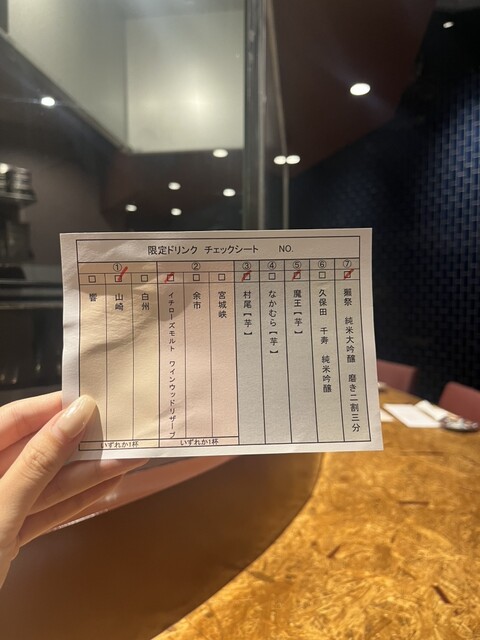 限定ドリンク チェックシート NO.
① ② ③ ④ ⑤ ⑥ ⑦
□ 響
□ 山崎
□ 白州
□ イチローズモルト ワインウッドリザーブ
□ 余市
□ 宮城峡
□ 村尾【芋】
□ なかむら【芋】
□ 魔王【芋】
□ 久保田 千寿 純米吟醸
□ 獺祭 純米大吟醸 磨き二割三分
いずれか1杯
いずれか1杯